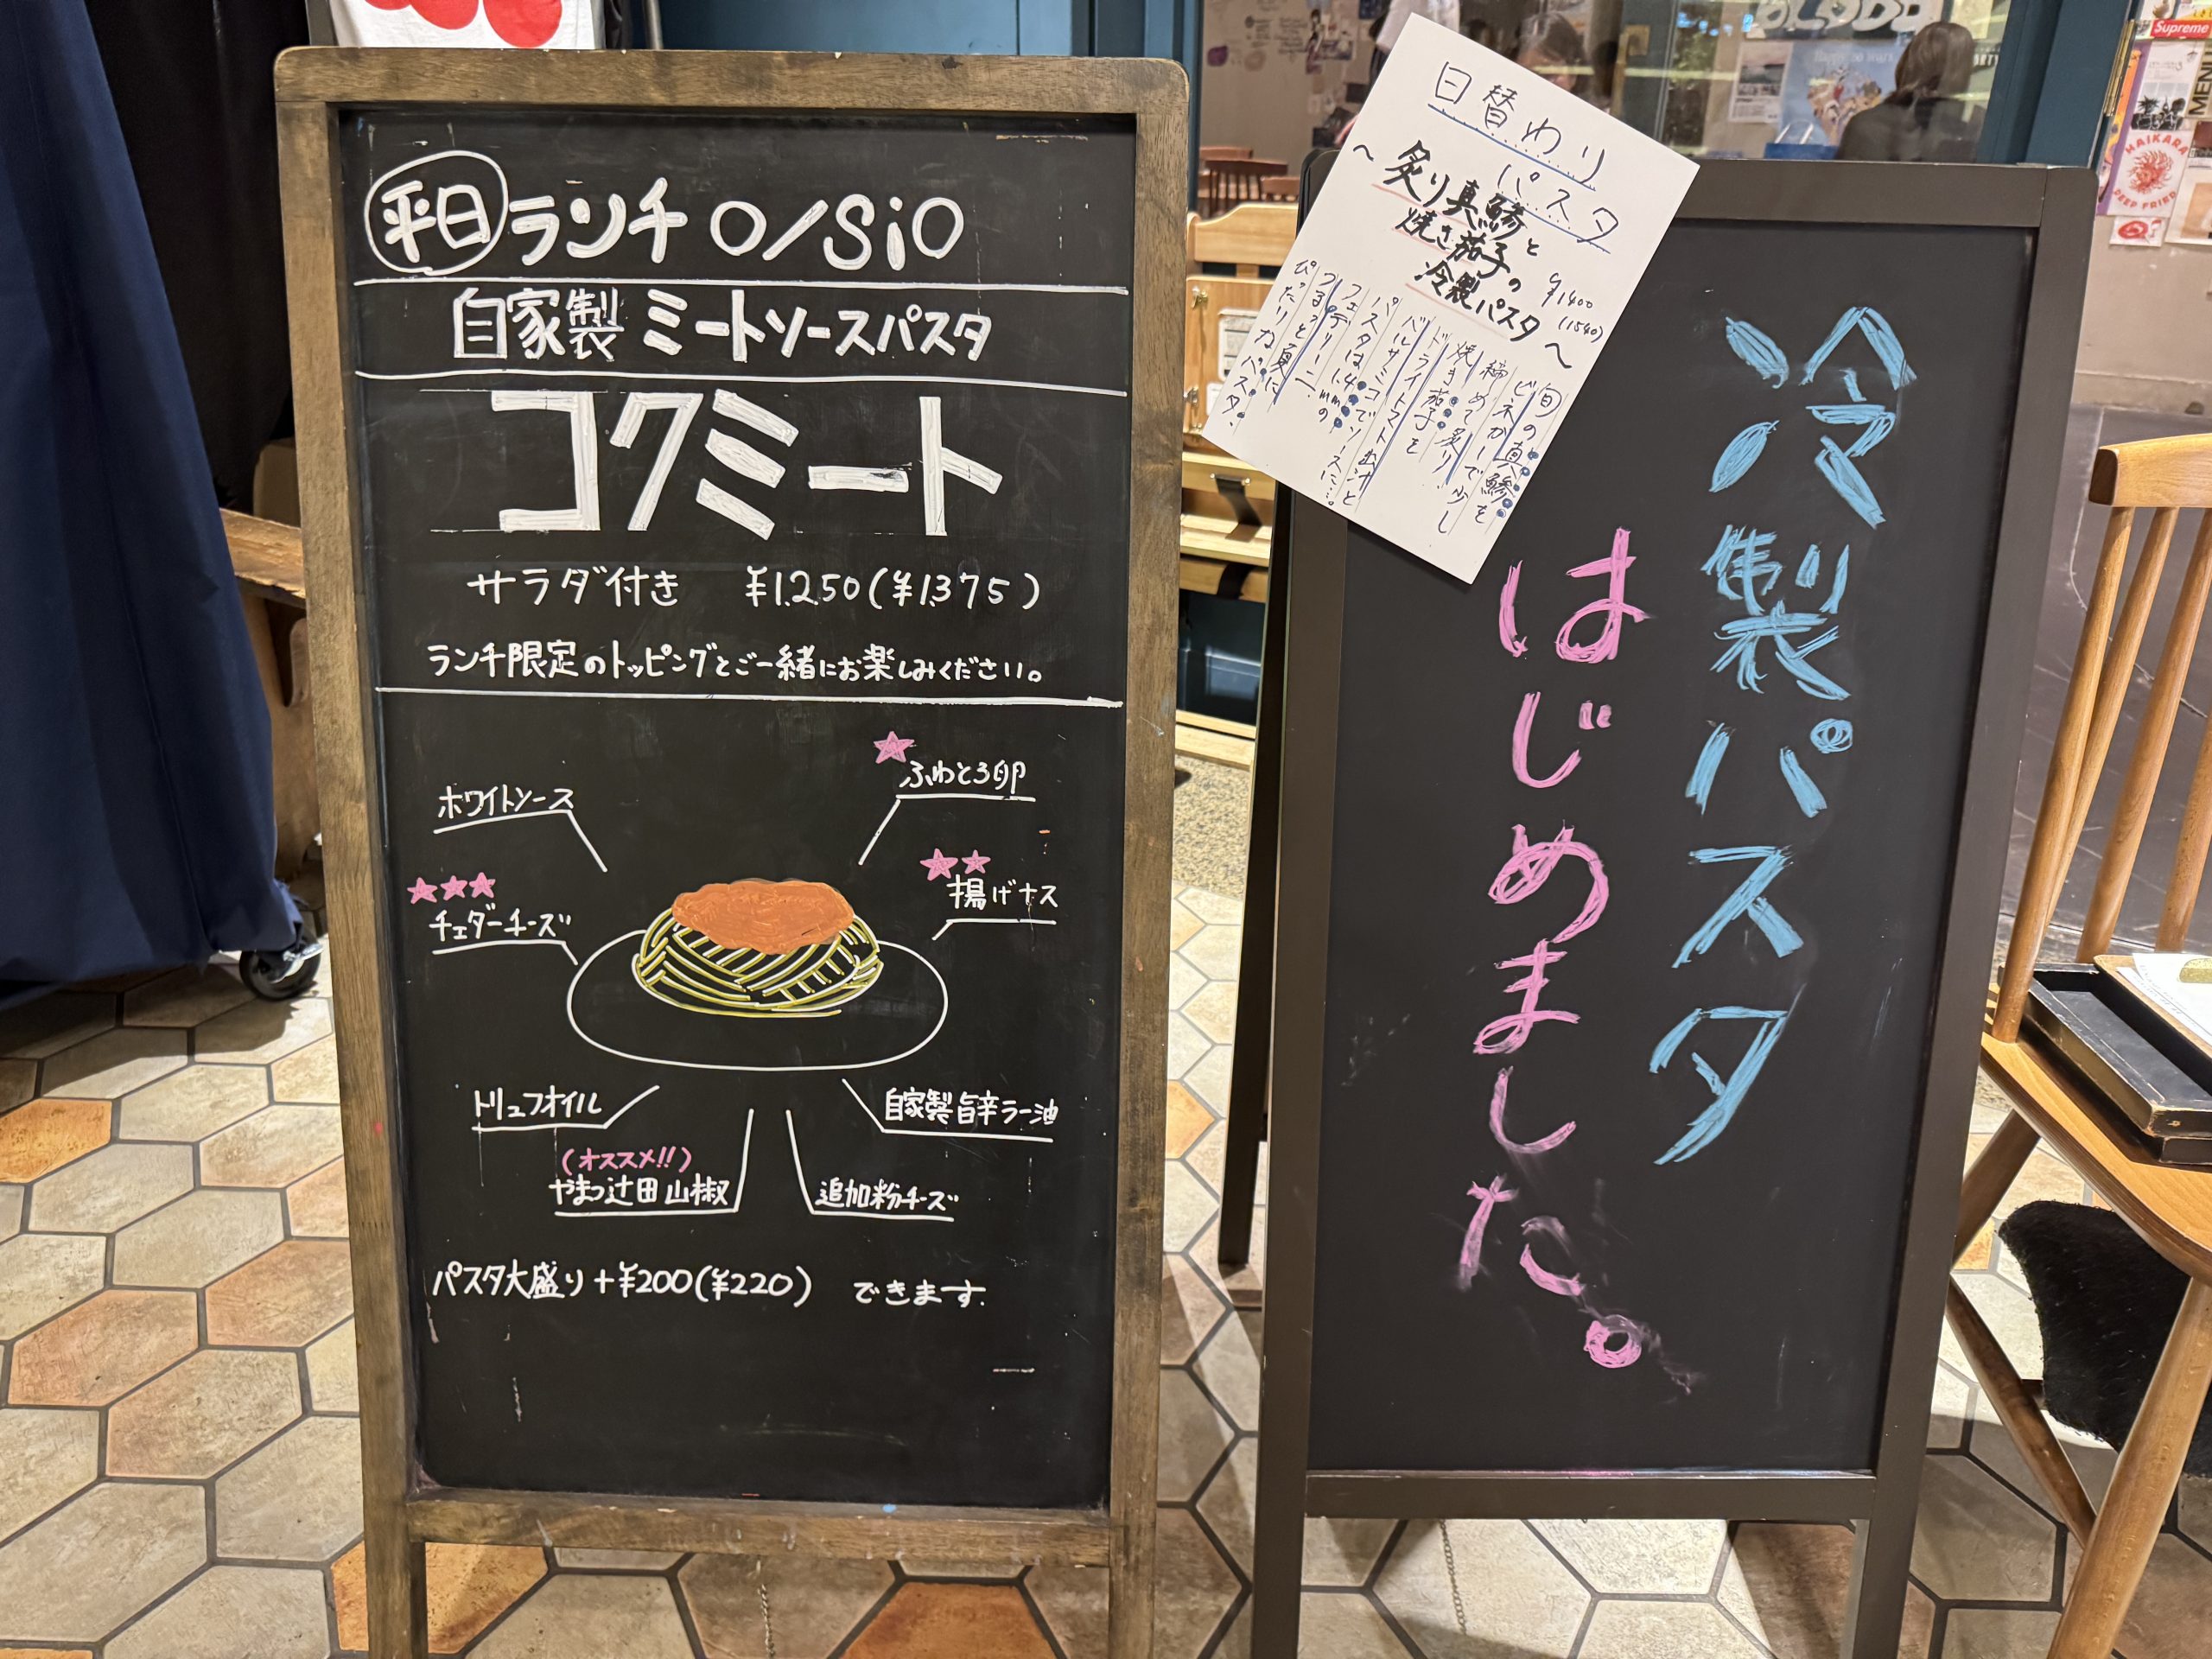 平日ランチ o/sio
自家製ミートソースパスタ
コクミート
サラダ付き ¥1,250(¥1,375)
ランチ限定のトッピングとご一緒にお楽しみください。
ホワイトソース
★★★
チェダーチーズ
★
ふわとろ卵
★★
揚げナス
トリュフオイル
自家製旨辛ラー油
(オススメ!!)
やまつ辻田山椒
追加粉チーズ
パスタ大盛り+¥200(¥220) できます.
日替わり
パスタ
〜炙り真鯵と
焼き茄子の
冷製パスタ〜
¥1400
(1540)
旬の真鯵を
ビネガーで少し
締めて炙り、
焼き茄子を
ドライトマト出汁と
バルサミコでソースに…。
パスタは1.4mmの
フェデリーニ。
つるっと夏に
ぴったりなパスタ。
冷製パスタ
はじめました。
Supreme
MENU
HAIKARA
DEEP FRIED